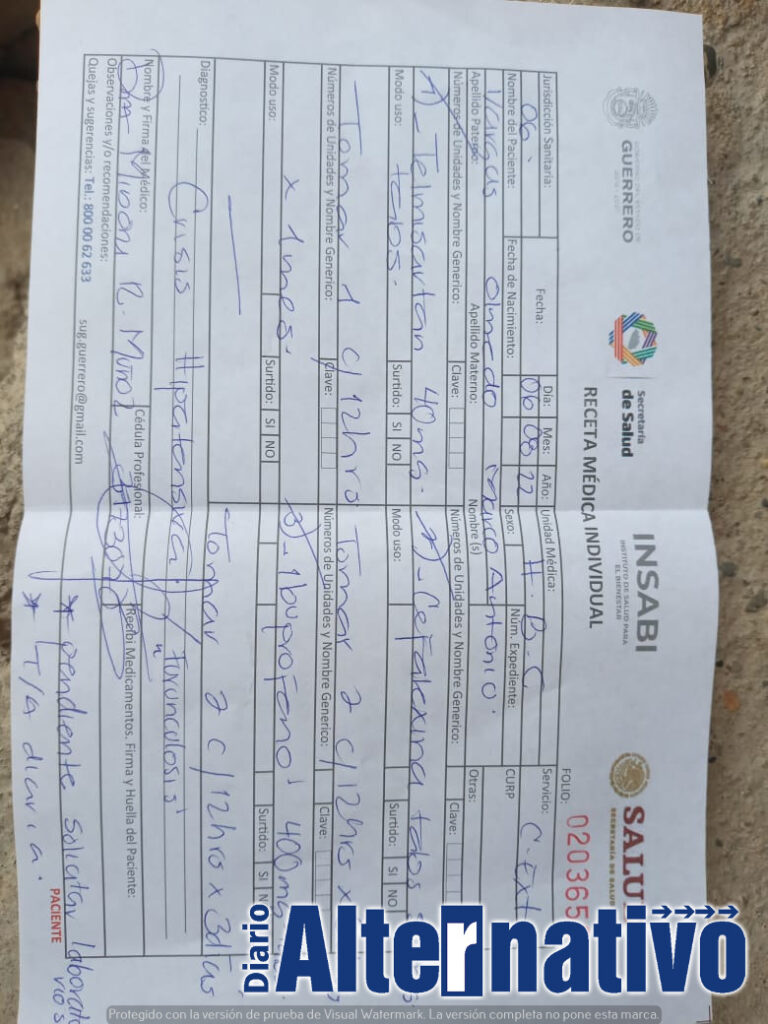 GUERRERO
Secretaría
de Salud
INSABI
INSTITUTO DE SALUD PARA
EL BIENESTAR
SALU
SECRETARÍA DE SALUD
RECETA MÉDICA INDIVIDUAL
FOLIO: 020365
Jurisdicción Sanitaria: 06. Fecha: Día: 06 Mes: 08 Año: 22 Unidad Médica: H. B-C Servicio: C-Ext
Nombre del Paciente: Fecha de Nacimiento: Sexo: Núm. Expediente: CURP
Vargas Olmedo Marco Antonio.
Apellido Paterno: Apellido Materno: Nombre (s) Otras:
Números de Unidades y Nombre Generico: Clave: Números de Unidades y Nombre Generico: Clave:
1)- Telmisartan 40mg. Cefalexina tabs
tabs.
Modo uso: Surtido: SI NO Modo uso: Surtido: SI NO
Tomar 1 c/12hrs Tomar 2 c/12hrs x
Números de Unidades y Nombre Generico: Clave: Números de Unidades y Nombre Generico: Clave:
x 1mes. 3)- Ibuprofeno 400mg
Modo uso: Surtido: SI NO Surtido: SI
Tomar 2 c/12hrs x 3días
Diagnostico:
Crisis Hipertensiva // furunculosis
Nombre y Firma del Médico: Cédula Profesional: Recibí Medicamentos. Firma y Huella del Paciente:
Observaciones y/o recomendaciones: * pendiente solicitar laboratorios
* T/A diaria.
Quejas y sugerencias: Tel.: 800 00 62 633 sug.guerrero@gmail.com
PACIENTE
Diario
Alternativo
Protegido con la versión de prueba de Visual Watermark. La versión completa no pone esta marca.